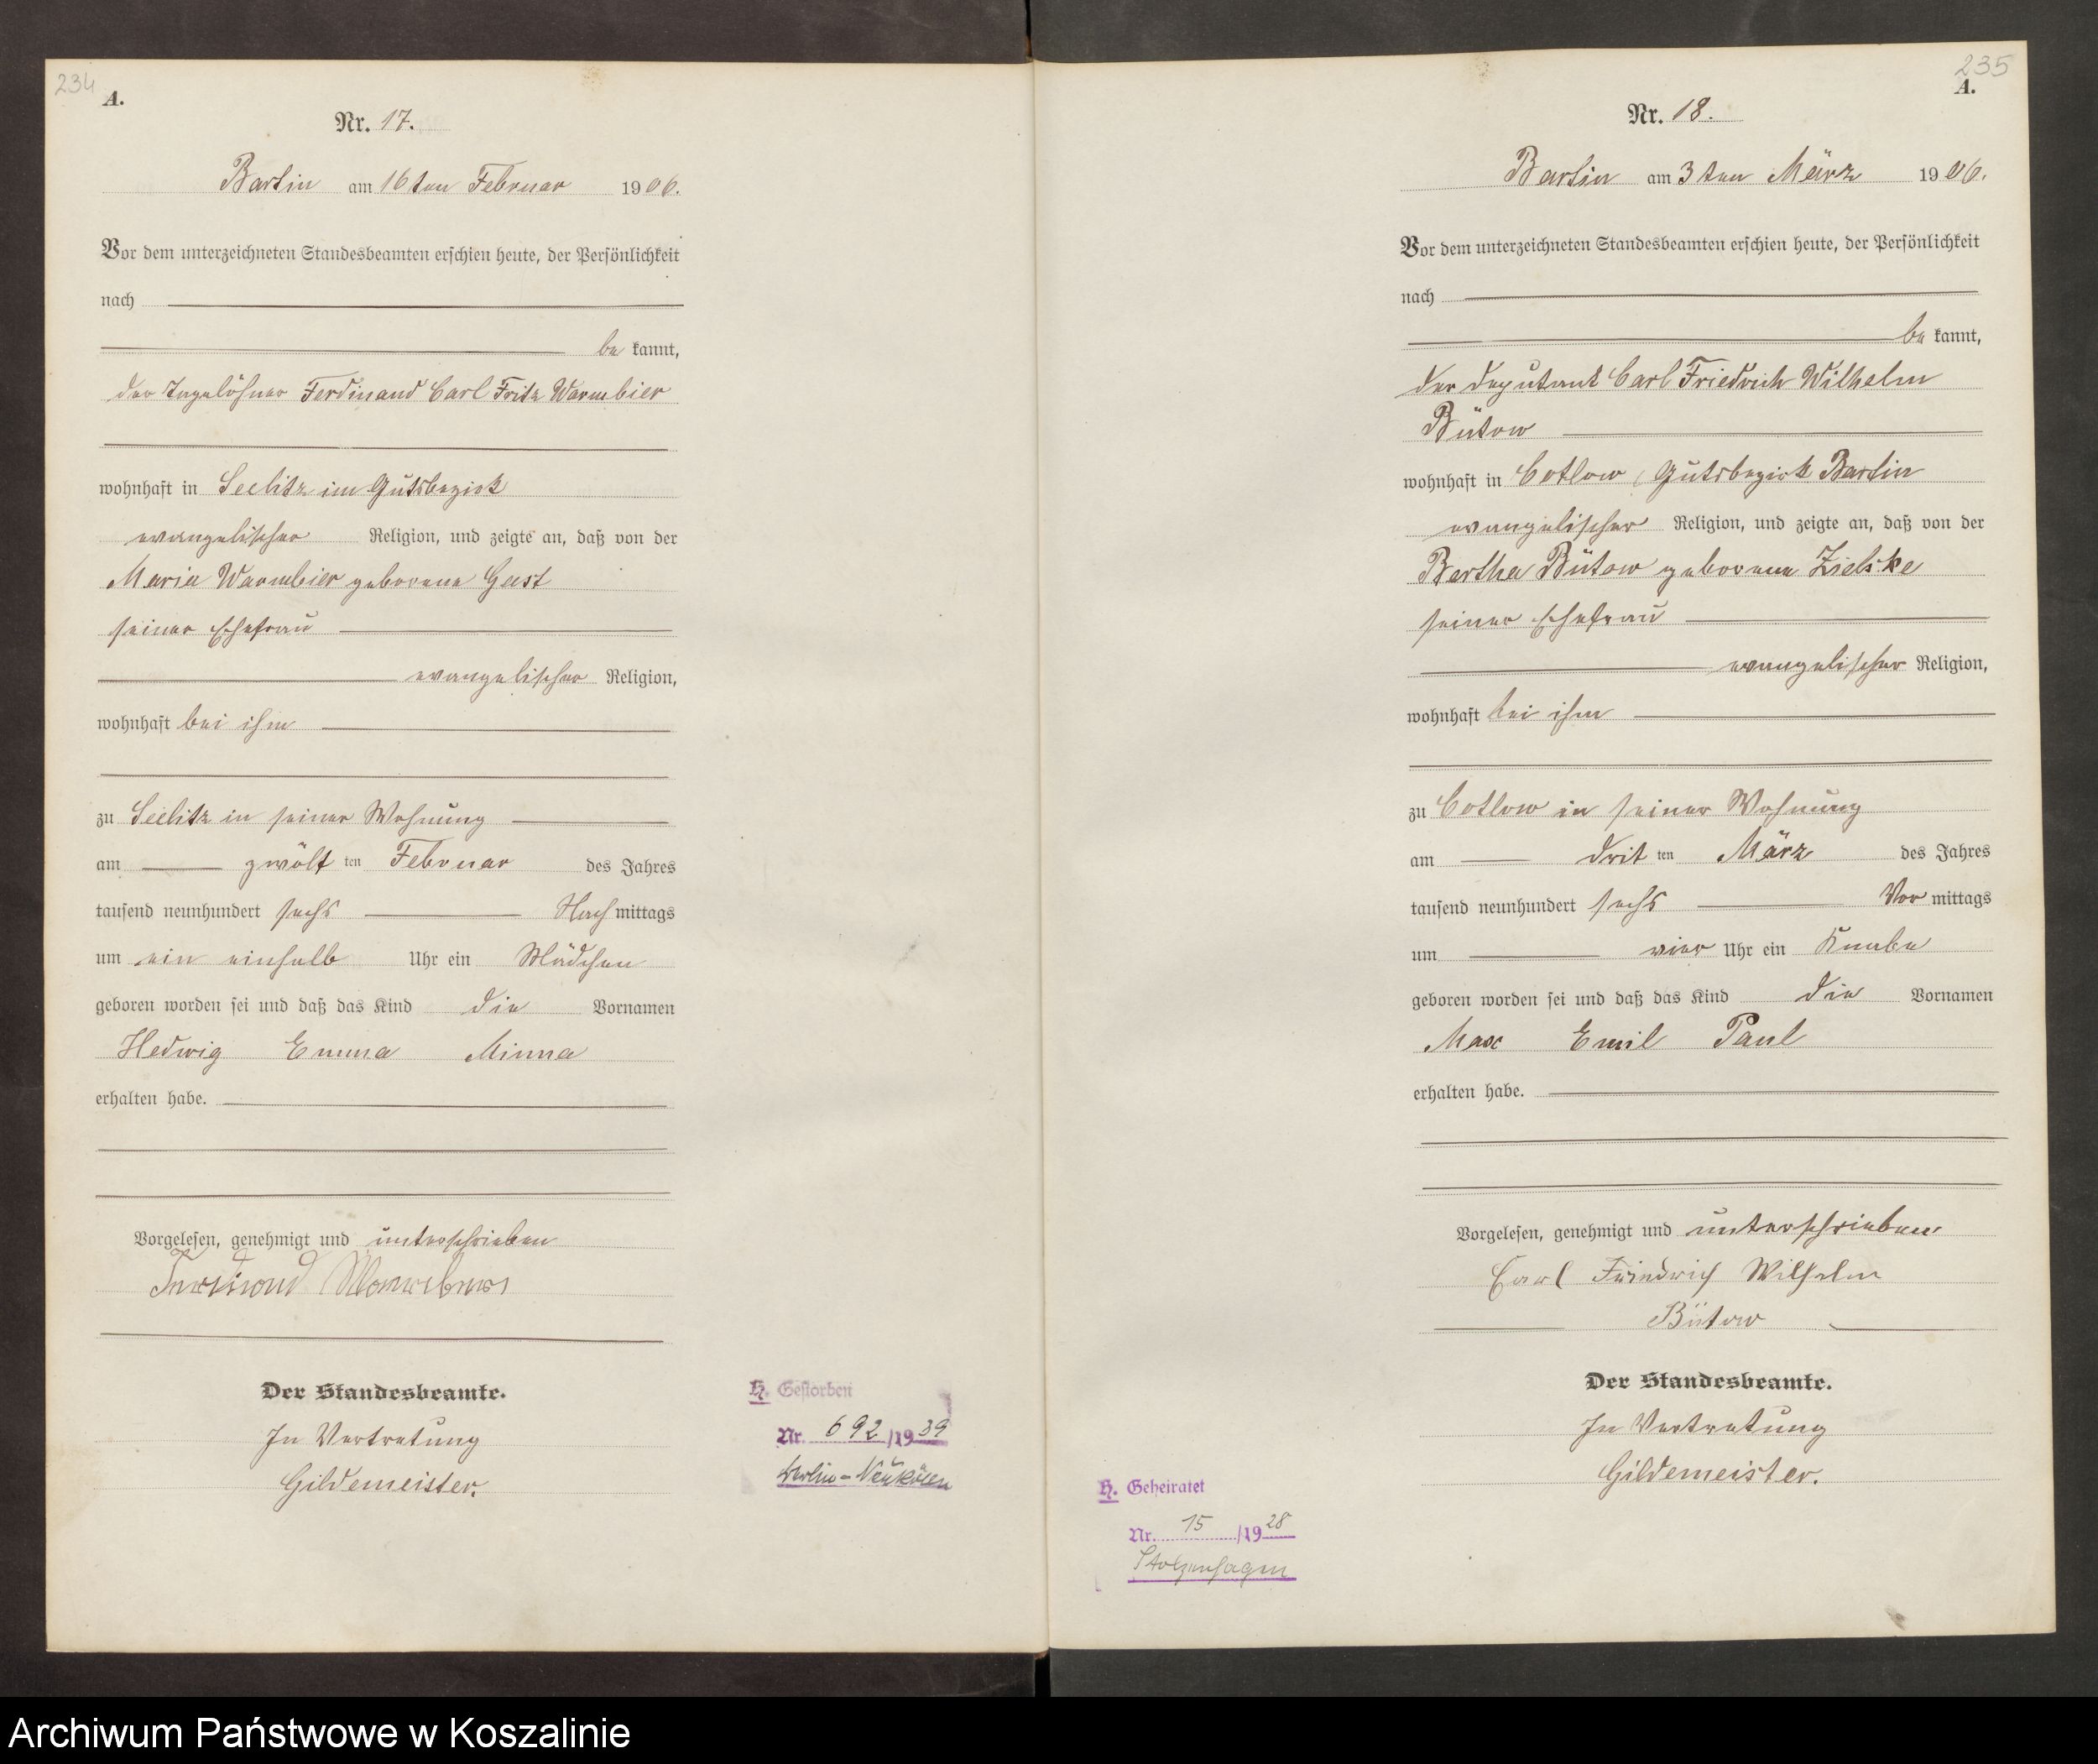 234
A.
Nr. 17.
Bartin am 16ten Februar 1906.
Vor dem unterzeichneten Standesbeamten erschien heute, der Persönlichkeit
nach
be kannt,
der Tagelöhner Ferdinand Carl Fritz Warmbier
wohnhaft in Seelitz im Gutsbezirk
evangelischer Religion, und zeigte an, daß von der
Maria Warmbier geborene Gast
seiner Ehefrau
evangelischer Religion,
wohnhaft bei ihm
zu Seelitz in seiner Wohnung
am zwölf ten Februar des Jahres
tausend neunhundert sechs Nach mittags
um ein einhalb Uhr ein Mädchen
geboren worden sei und daß das Kind die Vornamen
Hedwig Emma Minna
erhalten habe.
Vorgelesen, genehmigt und unterschrieben
Der Standesbeamte.
In Vertretung
Gildemeister.
H. Gestorben
Nr. 692/1939
Berlin-Neukölln
235
A.
Nr. 18.
Bartin am 3ten März 1906.
Vor dem unterzeichneten Standesbeamten erschien heute, der Persönlichkeit
nach
be kannt,
der Deputant Carl Friedrich Wilhelm
Bütow
wohnhaft in Cotlow, Gutsbezirk Bartin
evangelischer Religion, und zeigte an, daß von der
Bertha Bütow geborene Zielske
seiner Ehefrau
evangelischer Religion,
wohnhaft bei ihm
zu Cotlow in seiner Wohnung
am drit ten März des Jahres
tausend neunhundert sechs Vor mittags
um vier Uhr ein Knabe
geboren worden sei und daß das Kind die Vornamen
Max Emil Paul
erhalten habe.
Vorgelesen, genehmigt und unterschrieben
Carl Friedrich Wilhelm
Bütow
Der Standesbeamte.
In Vertretung
Gildemeister.
H. Geheiratet
Nr. 15/1928
Stolzenhagen
Archiwum Państwowe w Koszalinie